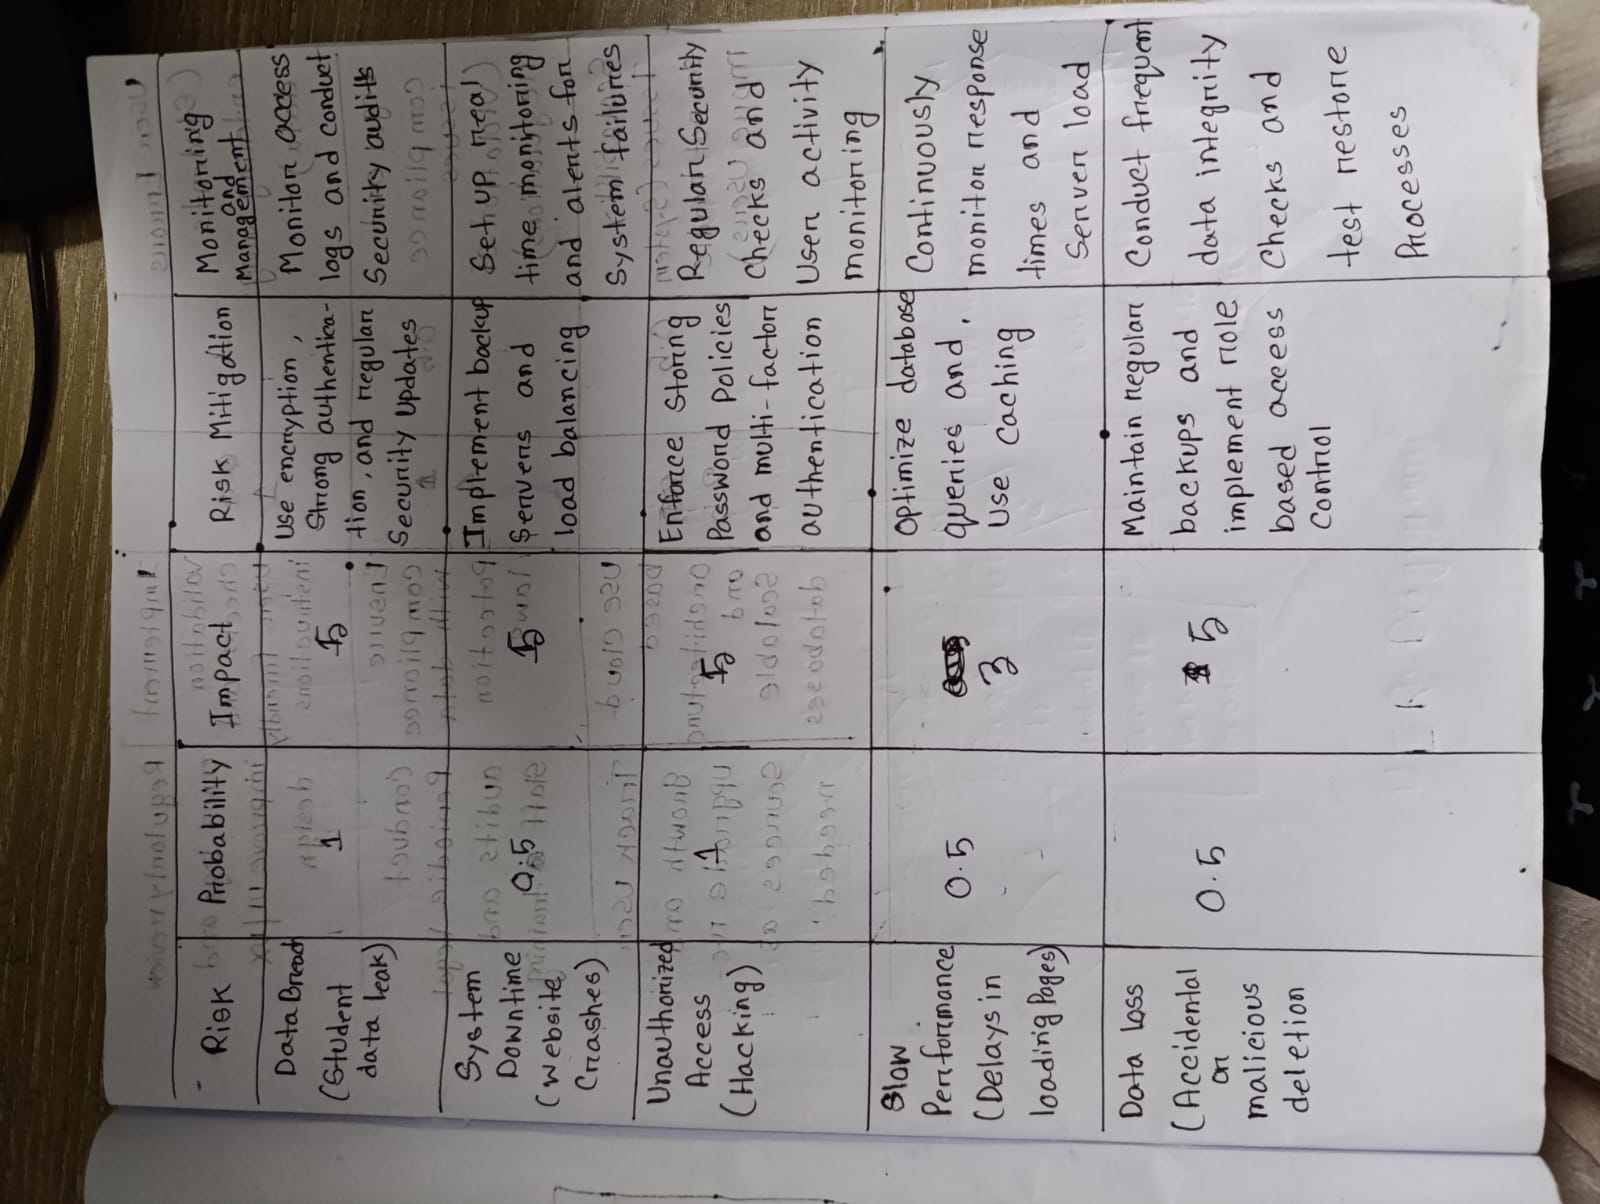 Risk
Probability
Impact
Risk Mitigation
Monitoring
and
Management
Data Breach
(Student
data leak)
1
5
Use encryption,
Strong authentica-
tion, and regular
Security Updates
Monitor access
logs and conduct
Security audits
System
Downtime
(Website
Crashes)
0.5
5
Implement backup
Servers and
load balancing
Set up real
time monitoring
and alerts for
System failures
Unauthorized
Access
(Hacking)
1
5
Enforce Storing
Password Policies
and multi-factor
authentication
Regular Security
Checks and
User activity
monitoring
Slow
Performance
(Delays in
loading Pages)
0.5
3
Optimize database
queries and,
Use Caching
Continuously
monitor response
times and
Server load
Data loss
(Acceidental
or
malicious
deletion
0.5
5
Maintain regular
backups and
implement role
based access
Control
Conduct frequent
data integrity
Checks and
test restore
Processes